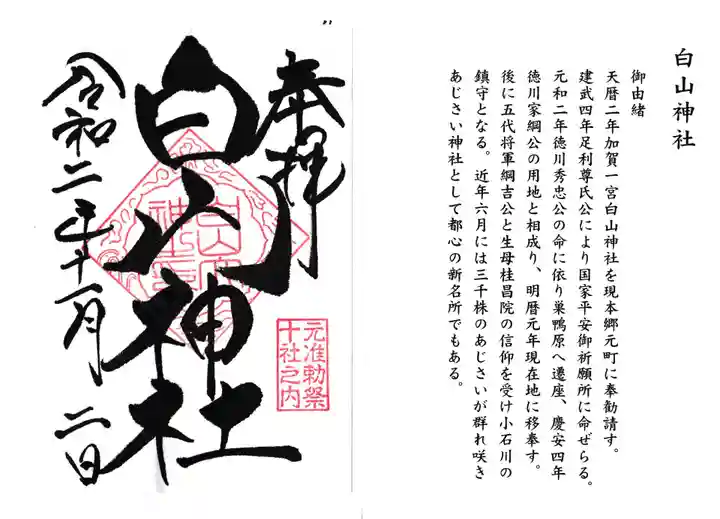 白山神社
御由緒
天暦二年加賀一宮白山神社を現本郷元町に奉勧請す。
建武四年足利尊氏公により国家平安御祈願所に命ぜらる。
元和二年徳川秀忠公の命に依り巣鴨原へ遷座、慶安四年
徳川家綱公の用地と相成り、明暦元年現在地に移奉す。
後に五代将軍綱吉公と生母桂昌院の信仰を受け小石川の
鎮守となる。近年六月には三千株のあじさいが群れ咲き
あじさい神社として都心の新名所でもある。
奉拝
白山神社
元准勅祭
十社之内
令和二年十一月二日